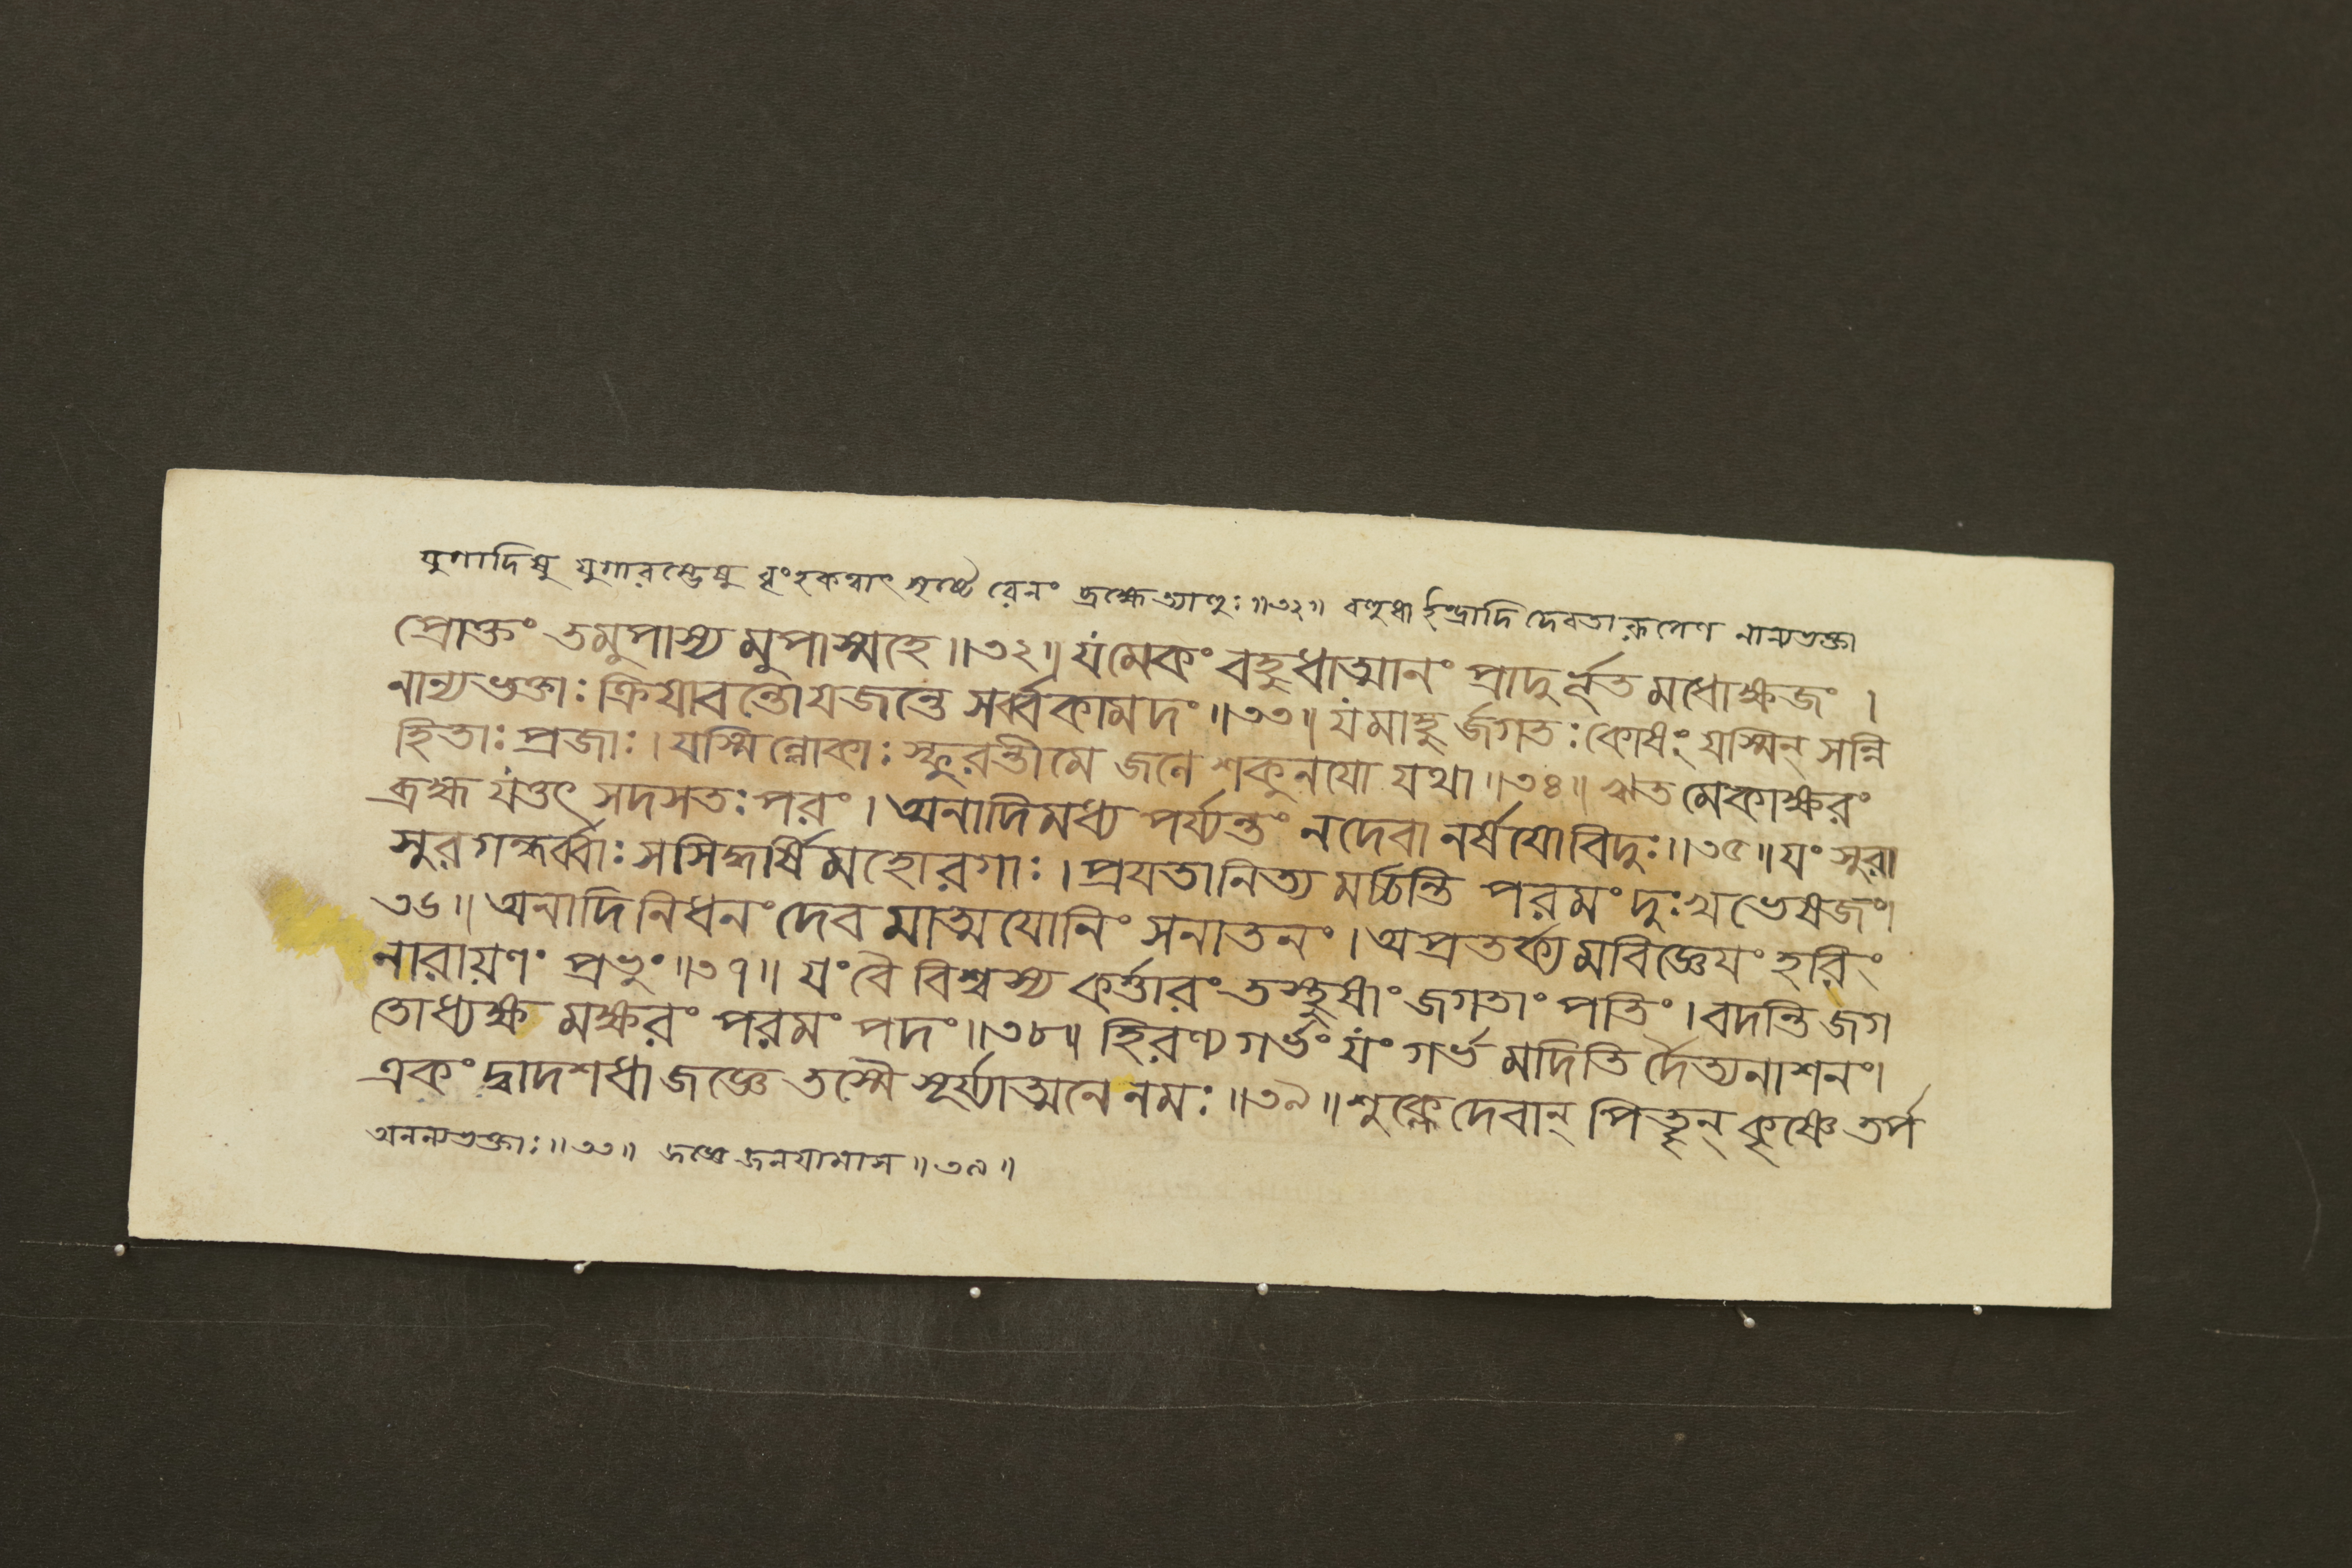 যুগাদিষু যুগারম্ভেষু বৃংহকত্বাৎ সৃষ্টে রেনং ব্রহ্মেত্যাহুঃ॥৩২॥ বহুধা ইন্দ্রাদি দেবতারূপেণ নান্যভক্তা
প্রোক্তং তমুপাস্য মুপাস্মহে॥৩২॥ যমেকং বহুধাত্মানং প্রাদুর্ভূত মধোক্ষজং।
নান্যভক্তাঃ ক্রিয়াবন্তোযজন্তে সর্ব্বকামদং॥৩৩॥ যংমাহু র্জগতঃকোষং যস্মিন্ সন্নি
হিতাঃ প্রজাঃ। যস্মিন্লোকাঃ স্ফুরন্তীমে জনে শকুনযো যথা॥৩৪॥ ঋত মেকাক্ষরং
ব্রহ্ম যত্তৎ সদসতঃপরং। অনাদিমধ্য পর্য্যন্তং নদেবা নর্ষযোবিদুঃ॥৩৫॥ যং সুরা
সুরগন্ধর্ব্বাঃ সসিদ্ধর্ষিমহোরগাঃ। প্রযতানিত্য মর্চ্চন্তি পরমং দুঃখভেষজং।
৩৬॥ অনাদিনিধনং দেব মাত্মযোনিং সনাতনং। অপ্রতর্ক্যমবিজ্ঞেযং হরিং
নারায়ণং প্রভুং॥৩৭॥ যং বৈ বিশ্বস্য কর্ত্তারং তস্থুষাং জগতাং পতিং। বদন্তি জগ
তোধ্যক্ষ মক্ষরং পরমং পদং॥৩৮॥ হিরণ্য গর্ভং যং গর্ভ মদিতি র্দৈত্যনাশনং।
একং দ্বাদশধাজজ্ঞে তস্মৈ সূর্য্যাত্মনে নমঃ॥৩৯॥ শুক্লেদেবান্ পিতৄন্ কৃষ্ণে তর্প
অনন্যভক্তাঃ॥৩৩॥ জজ্ঞে জনযামাস॥৩৯॥